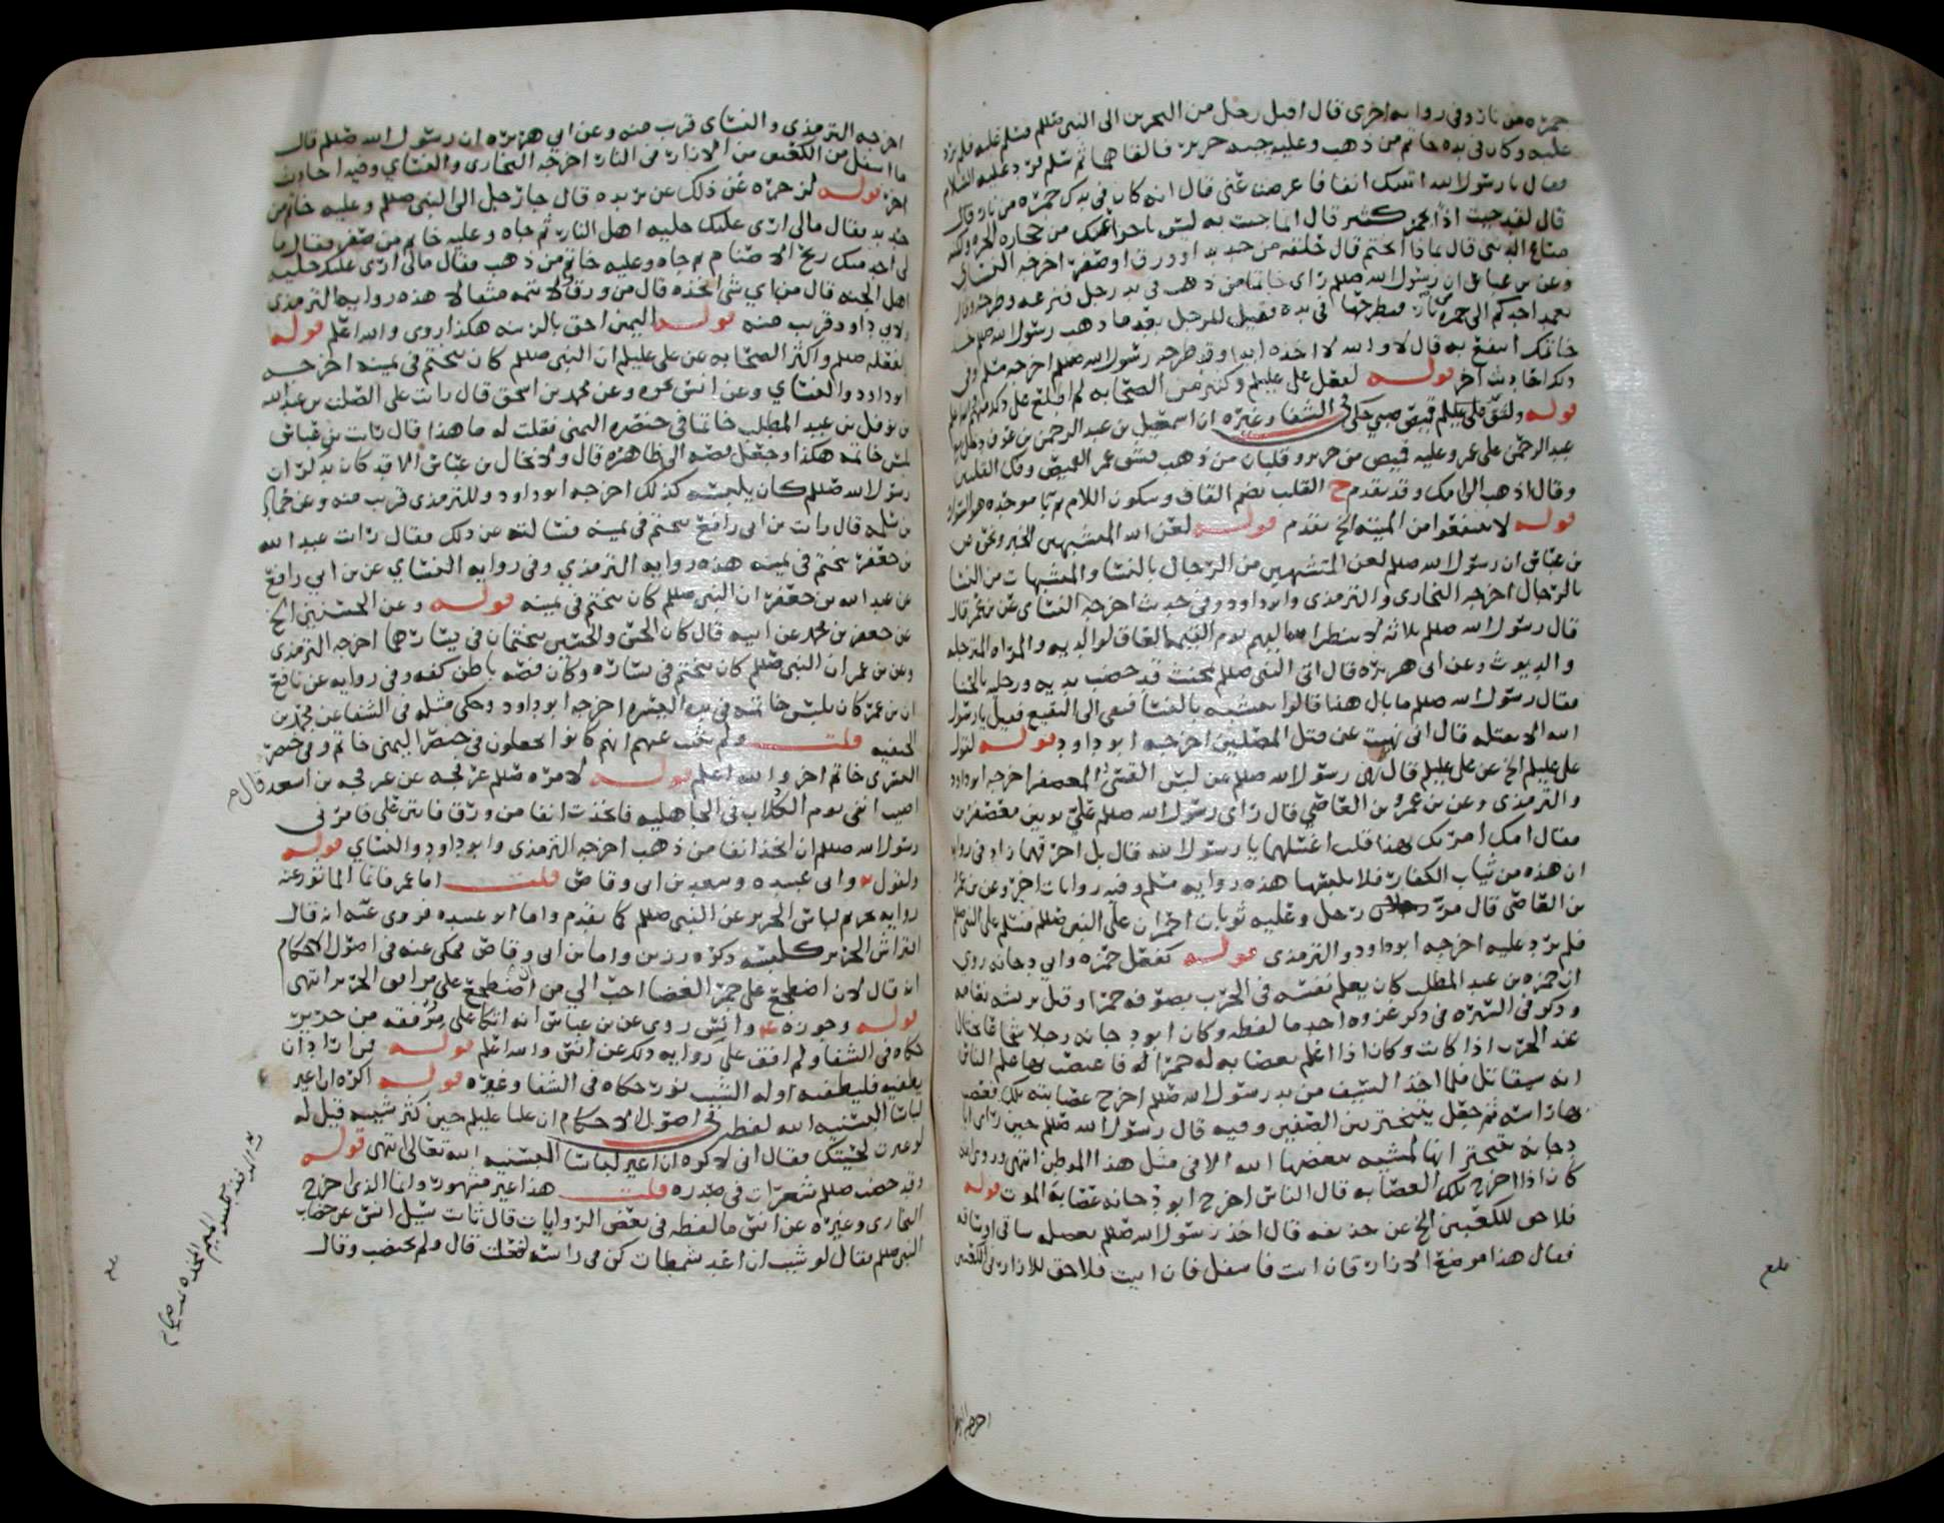 جمرة من نار وفي رواية اخرى قال اقبل رجل من البحرين الى النبي صللم فسلم عليه فلم يرد
عليه وكان في يده خاتم من ذهب وعليه جبه حرير فالقاهما ثم سلم فرد عليه السلام
فقال يا رسول الله اتيتك انفا فاعرضت عني قال انه كان في يدك جمرة من نار قال
قال لقد جيت اذا بجمر كثير قال انما جيت به ليس باجزا عنك من حجارة الحرة ولكنه
متاع الدنيا قال فماذا اتختم قال حلقه من حديد او ورق او صفر اخرجه النساي
وعن بن عباس ان رسول الله صللم راى خاتما من ذهب في يد رجل فنزعه وطرحه وقال
يعمد احدكم الى جمرة من نار فيطرحها في يده فقيل للرجل بعد ما ذهب رسول الله صللم خذ
خاتمك انتفع به قال لا والله لا اخذه ابدا وقد طرحه رسول الله صللم اخرجه مسلم وفي
ذلك احاديث اخر قوله لفعل علي عليلم وكثير من الصحابه لم اطلع على ذكر
قوله ولشق علي عليلم قميص صبي حكى في الشفا وغيره ان اسمعيل بن عبد الرحمن بن عوف دخل مع
عبد الرحمن على عمر وعليه قميص من حرير وقلبان من ذهب فشق عمر القميص وفك القلبين
وقال اذهب الى امك وقد تقدم ح القلب بضم القاف وسكون اللام ثم با موحده هو السوار
قوله لا تنتفعوا من الميته الخ تقدم قوله لعن الله المتشبهين الخبر وعن
بن عباس ان رسول الله صللم لعن المتشبهين من الرجال بالنسا والمتشبهات من النسا
بالرجال اخرجه البخاري والترمذي وابو داود وفي حديث اخرجه النساي عن بن عمر قال
قال رسول الله صللم ثلاثه لا ينظر الله اليهم يوم القيمه العاق لوالديه والمراه المترجله
والديوث وعن ابي هريره قال اتي النبي صللم بمخنث قد خضب يديه ورجليه بالحنا
فقال رسول الله صللم ما بال هذا قالوا يتشبه بالنسا فنفي الى النقيع فقيل يا رسول
الله الا نقتله قال اني نهيت عن قتل المصلين اخرجه ابو داود قوله لقول
علي عليلم الخ عن علي عليلم قال نهى رسول الله صللم عن لبس القسي والمعصفر اخرجه ابو داود
والترمذي وعن بن عمرو بن العاصي قال راى رسول الله صللم علي ثوبين معصفرين
فقال امك امرتك بهذا قلت اغسلهما يا رسول الله قال بل احرقهما زاد في رواية
ان هذه من ثياب الكفار فلا تلبسها هذه رواية مسلم وفيه روايات اخر وعن بن عمرو
بن العاصي قال مر رجل وعليه ثوبان احمران على النبي صللم فسلم على النبي صللم
فلم يرد عليه اخرجه ابو داود والترمذي قوله كفعل حمزه وابي دجانه روي
ان حمزه بن عبد المطلب كان يعلم نفسه في الحرب بصوفه حمرا وقيل بريشه نعامه
وذكر في السيره في ذكر غزوه احد ما لفظه وكان ابو دجانه رجلا شجاعا يختال
عند الحرب اذا كانت وكان اذا اعلم بعصابه له حمرا فاعتصب بها علم الناس
انه سيقاتل فلما اخذ السيف من يد رسول الله صللم اخرج عصابته تلك فعصب
بها راسه ثم جعل يتبختر بين الصفين وفيه قال رسول الله صللم حين راى ابا
دجانه يتبختر انها لمشيه يبغضها الله الا في مثل هذا الموطن انتهى وروي انه
كان اذا اخرج تلك العصابه قال الناس اخرج ابو دجانه عصابة الموت قوله
فلا حق للكعبين الخ عن حذيفه قال اخذ رسول الله صللم بعضله ساقي او ساقه
فقال هذا موضع الازار فان ابيت فاسفل فان ابيت فلا حق للازار في الكعبين
بلغ
اخرجه الترمذي
اخرجه الترمذي والنساي قريب منه وعن ابي هريره ان رسول الله صللم قال
ما اسفل من الكعبين من الازار في النار اخرجه البخاري والنساي وفيه احاديث
اخر قوله لزجره عن ذلك عن بريده قال جا رجل الى النبي صللم وعليه خاتم من
حديد فقال مالي ارى عليك حليه اهل النار ثم جاه وعليه خاتم من صفر فقال ما
لي اجد منك ريح الاصنام ثم جاه وعليه خاتم من ذهب فقال مالي ارى عليك حلية
اهل الجنه قال من اي شي اتخذه قال من ورق ولا تتمه مثقالا هذه رواية الترمذي
ولابي داود قريب منه قوله اليمين احق بالزينه هكذا روي والله اعلم قوله
لفعله صللم واكثر الصحابه عن علي عليلم ان النبي صللم كان يتختم في يمينه اخرجه
ابو داود والنساي وعن انس نحوه وعن محمد بن اسحق قال رايت على الصلت بن عبد الله
بن نوفل بن عبد المطلب خاتما في خنصره اليمنى فقلت له ما هذا قال رايت بن عباس
لبس خاتمه هكذا وجعل فصه الى ظاهره قال ولا تخال بن عباس الا قد كان يذكر ان
رسول الله صللم كان يلبسه كذلك اخرجه ابو داود وللترمذي قريب منه وعن حماد
بن سلمه قال رايت بن ابي رافع يتختم في يمينه فسالته عن ذلك فقال رايت عبد الله
بن جعفر يتختم في يمينه هذه رواية الترمذي وفي رواية النساي عن بن ابي رافع
عن عبد الله بن جعفر ان النبي صللم كان يتختم في يمينه قوله وعن الحسنين الخ
عن جعفر بن محمد عن ابيه قال كان الحسن والحسين يتختمان في يسارهما اخرجه الترمذي
وعن بن عمر ان النبي صللم كان يتختم في يساره وكان فصه باطن كفه وفي رواية عن نافع
ان بن عمر كان يلبس خاتمه في يده اليسرى اخرجه ابو داود وحكى مثله في الشفا عن محمد بن
الحنفيه قلت ولم يثبت عنهم انهم كانوا يجعلون في خنصر اليمنى خاتم وفي خنصر
اليسرى خاتم اخر والله اعلم قوله لامره صللم عرفجه عن عرفجه بن اسعد قال
اصيب انفي يوم الكلاب في الجاهليه فاتخذت انفا من ورق فانتن علي فامرني
رسول الله صللم ان اتخذ انفا من ذهب اخرجه الترمذي وابو داود والنساي قوله
ولقول وابي عبيده وسعد بن ابي وقاص قلت اما عمر فانما الماثور عنه
رواية تحريم لباس الحرير عن النبي صللم كما تقدم واما ابو عبيده فروي عنه انه قال
افتراش الحرير كلبسه ذكره رزين واما بن ابي وقاص فحكي عنه في اصول الاحكام
انه قال لان اضطجع على جمر الغضا احب الي من اضطجع على مرافق الحرير انتهى
قوله وجوزه وانس روي عن بن عباس انه اتكا على مرفقه من حرير
حكاه في الشفا ولم اقف على رواية ذلك عن انس والله اعلم قوله من اراد ان
يطفيه فليطفه اوله الشيب نور حكاه في الشفا وغيره قوله اكره ان اغير
لباسا البسنيه الله لفظه في اصول الاحكام ان عليا عليلم حين كثر شيبه قيل له
لو غيرت لحيتك فقال اني لاكره ان اغير لباسا البسنيه الله تعالى انتهى قوله
وقد خضب صللم شعرات في صدره قلت هذا غير مشهور وانما الذي اخرج
البخاري وغيره عن انس ما لفظه في بعض الروايات قال ثابت سيل انس عن خضاب
النبي صللم فقال لو شيت ان اعد شمطات كن في راسه لفعلت قال ولم يختضب وقال